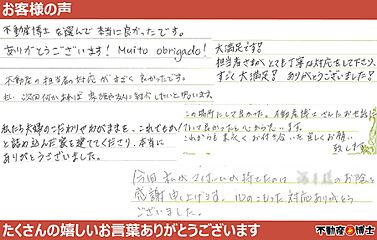 お客様の声
不動産博士を選んで本当に良かったです。
ありがとうございます! Muito obrigado!
大満足です!
担当者さまがとても丁寧な対応をして下さり、
すごく大満足! ありがとうございました!
不動産の担当者の対応がすごく良かったです。
又、次回何かあれば
紹介したいと思います。
この場所にして良かった。不動産博士さんにお世話
になって良かったと心から思います。
これからも末永くお付き合い宜しくお願い
致します
私たち夫婦のこだわりやわがままを、これでもか!
と詰め込んだ家を建てて下さり、本当に
ありがとうございました。
今回私がマイホームを持てたのは
のお陰と
感謝申し上げます。心のこもった対応ありがとう
ございました。
たくさんの嬉しいお言葉ありがとうございます
不動産博士